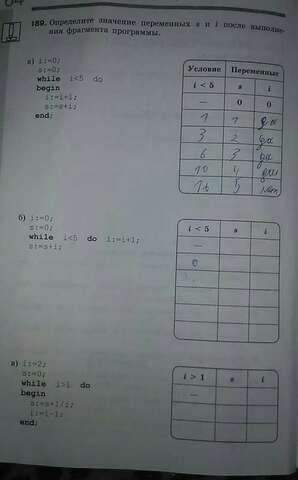 189. Определите значение переменных s и i после выполне-
ния фрагмента программы.
а) i:=0;
s:=0;
while i<5 do
begin
i:=i+1;
s:=s+i;
end;
Условие Переменные
i < 5 s i
— 0 0
1 1 да
3 2 да
6 3 да
10 4 да
15 5
б) i:=0;
s:=0;
while i<5 do i:=i+1;
s:=s+i;
i < 5 s i
—
0
в) i:=2;
s:=0;
while i>1 do
begin
s:=s+1/i;
i:=i-1;
end;
i > 1 s i
—